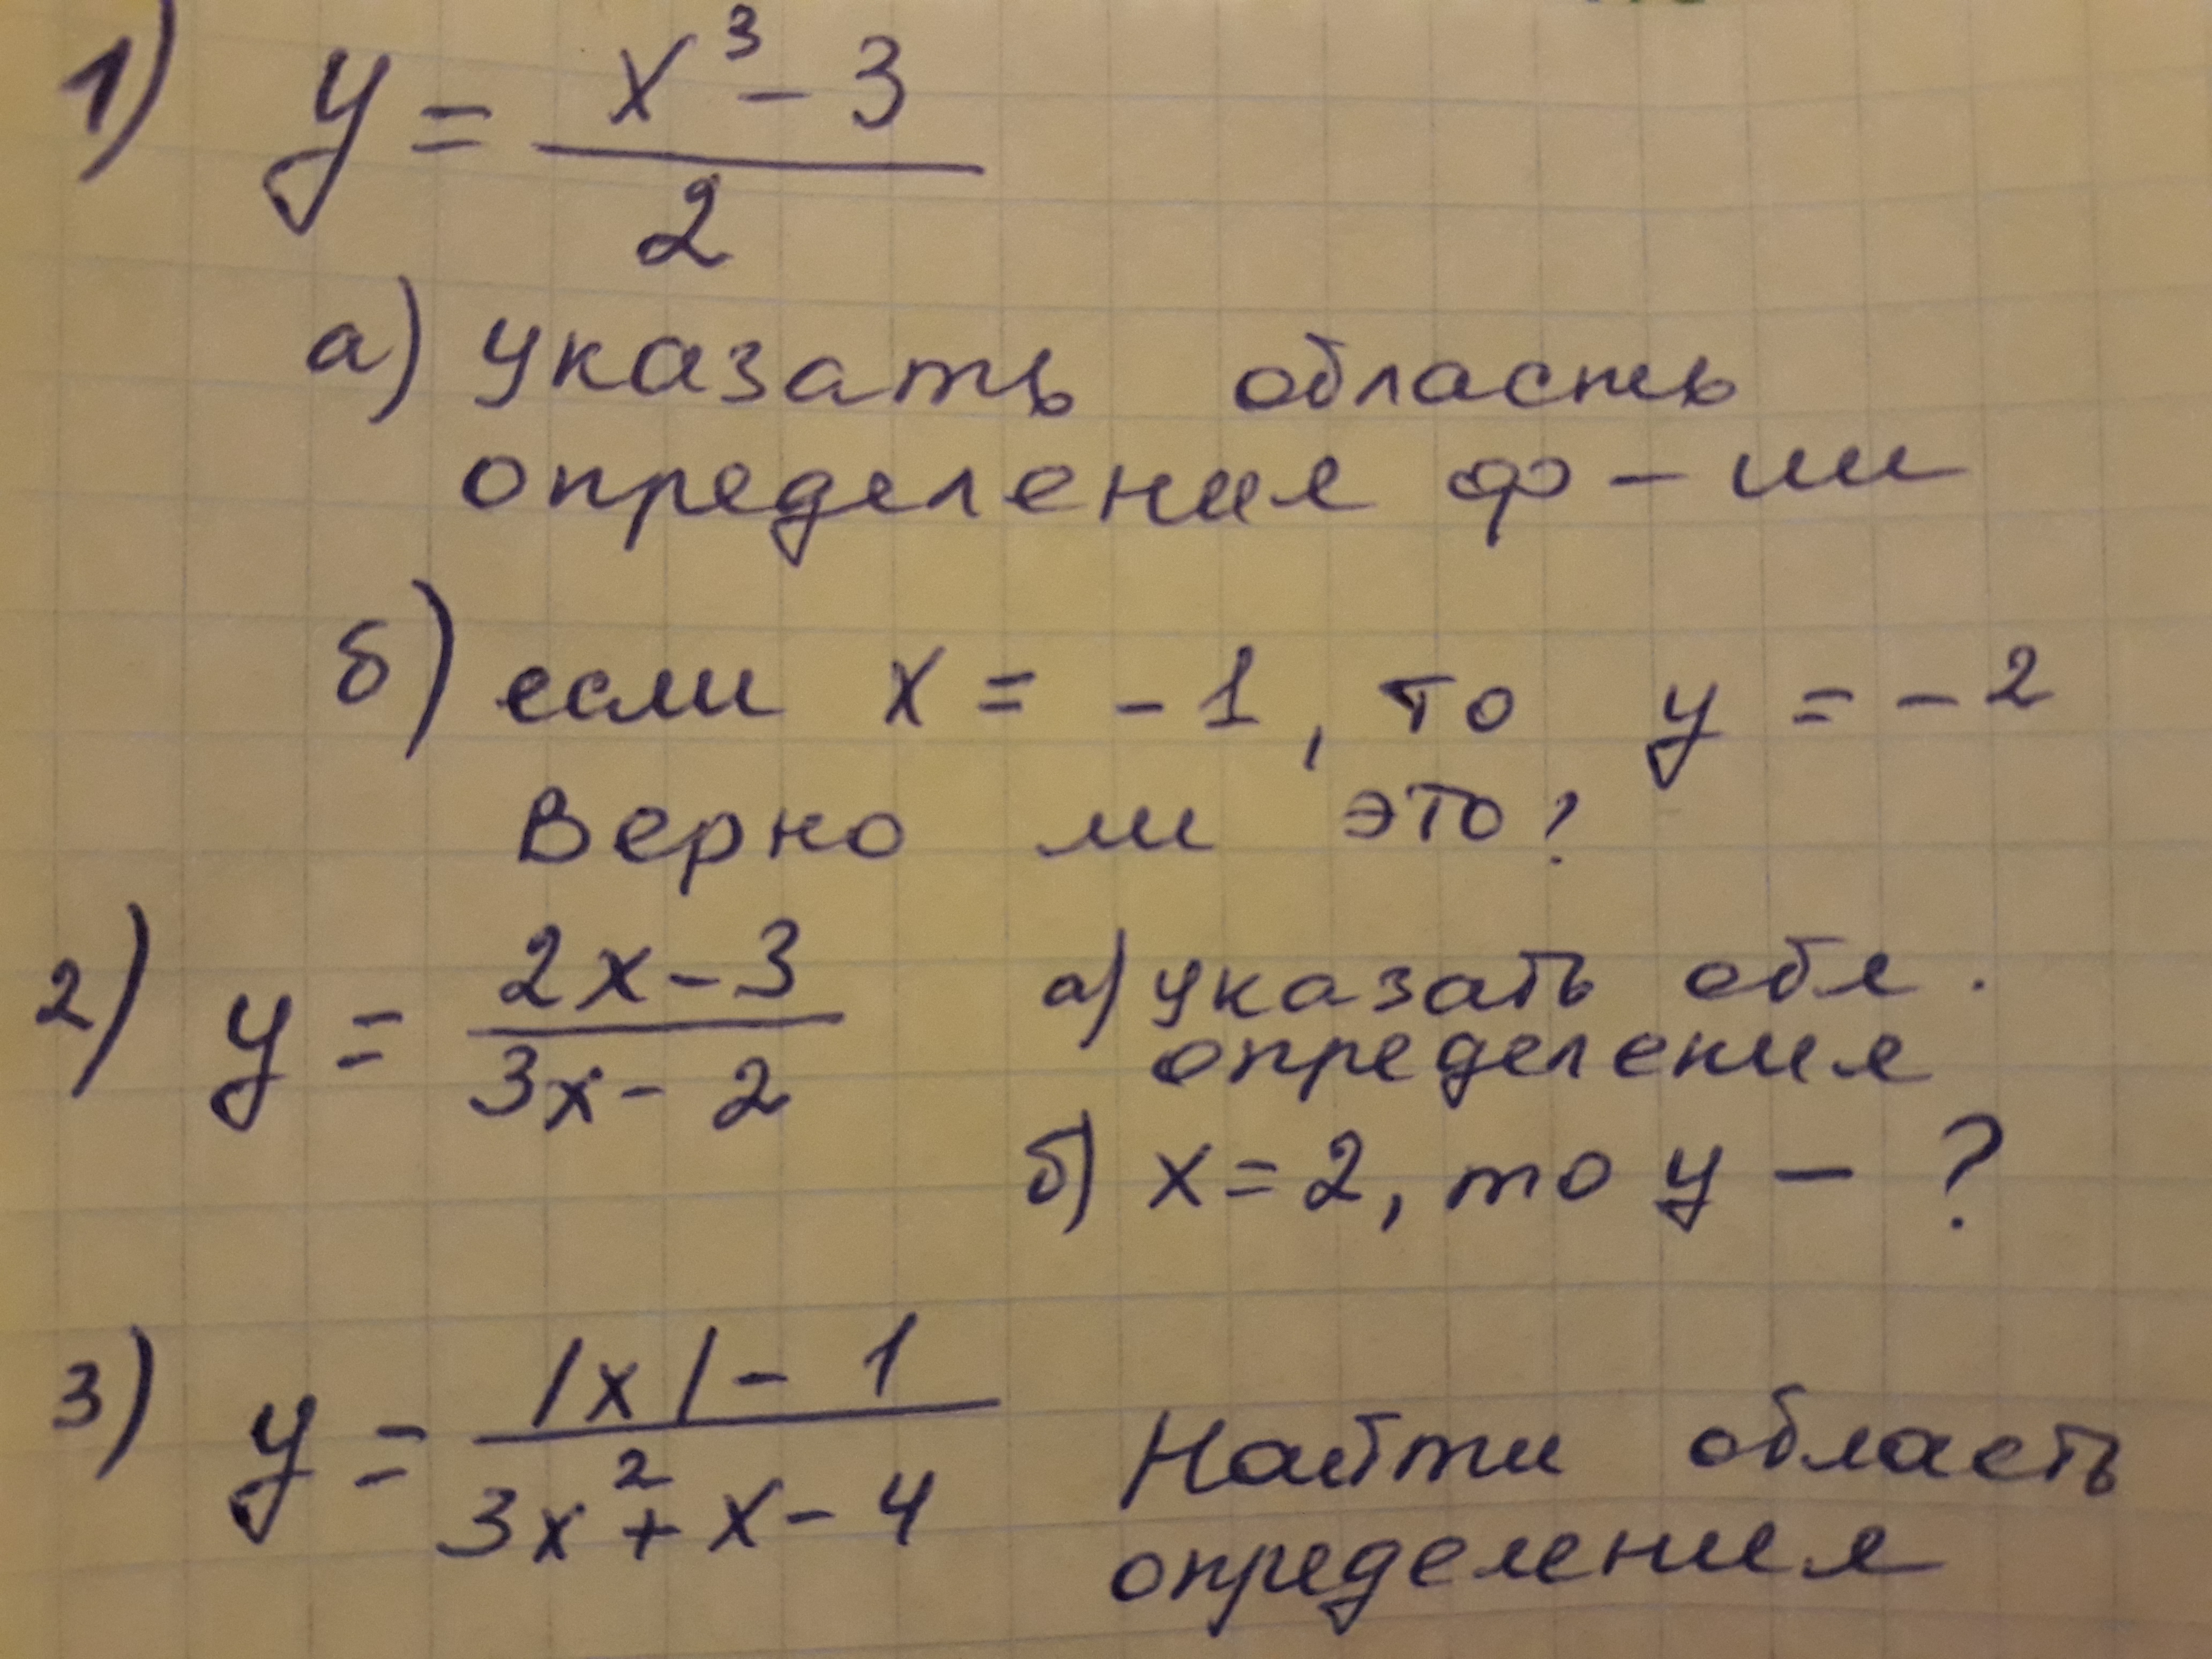 1) y = (x³ - 3)/2
а) указать область
определения ф-ии
б) если x = -1, то y = -2
Верно ли это?
2) y = (2x - 3)/(3x - 2) а) указать обл.
определения
б) x = 2, то y - ?
3) y = (|x| - 1)/(3x² + x - 4) Найти область
определения